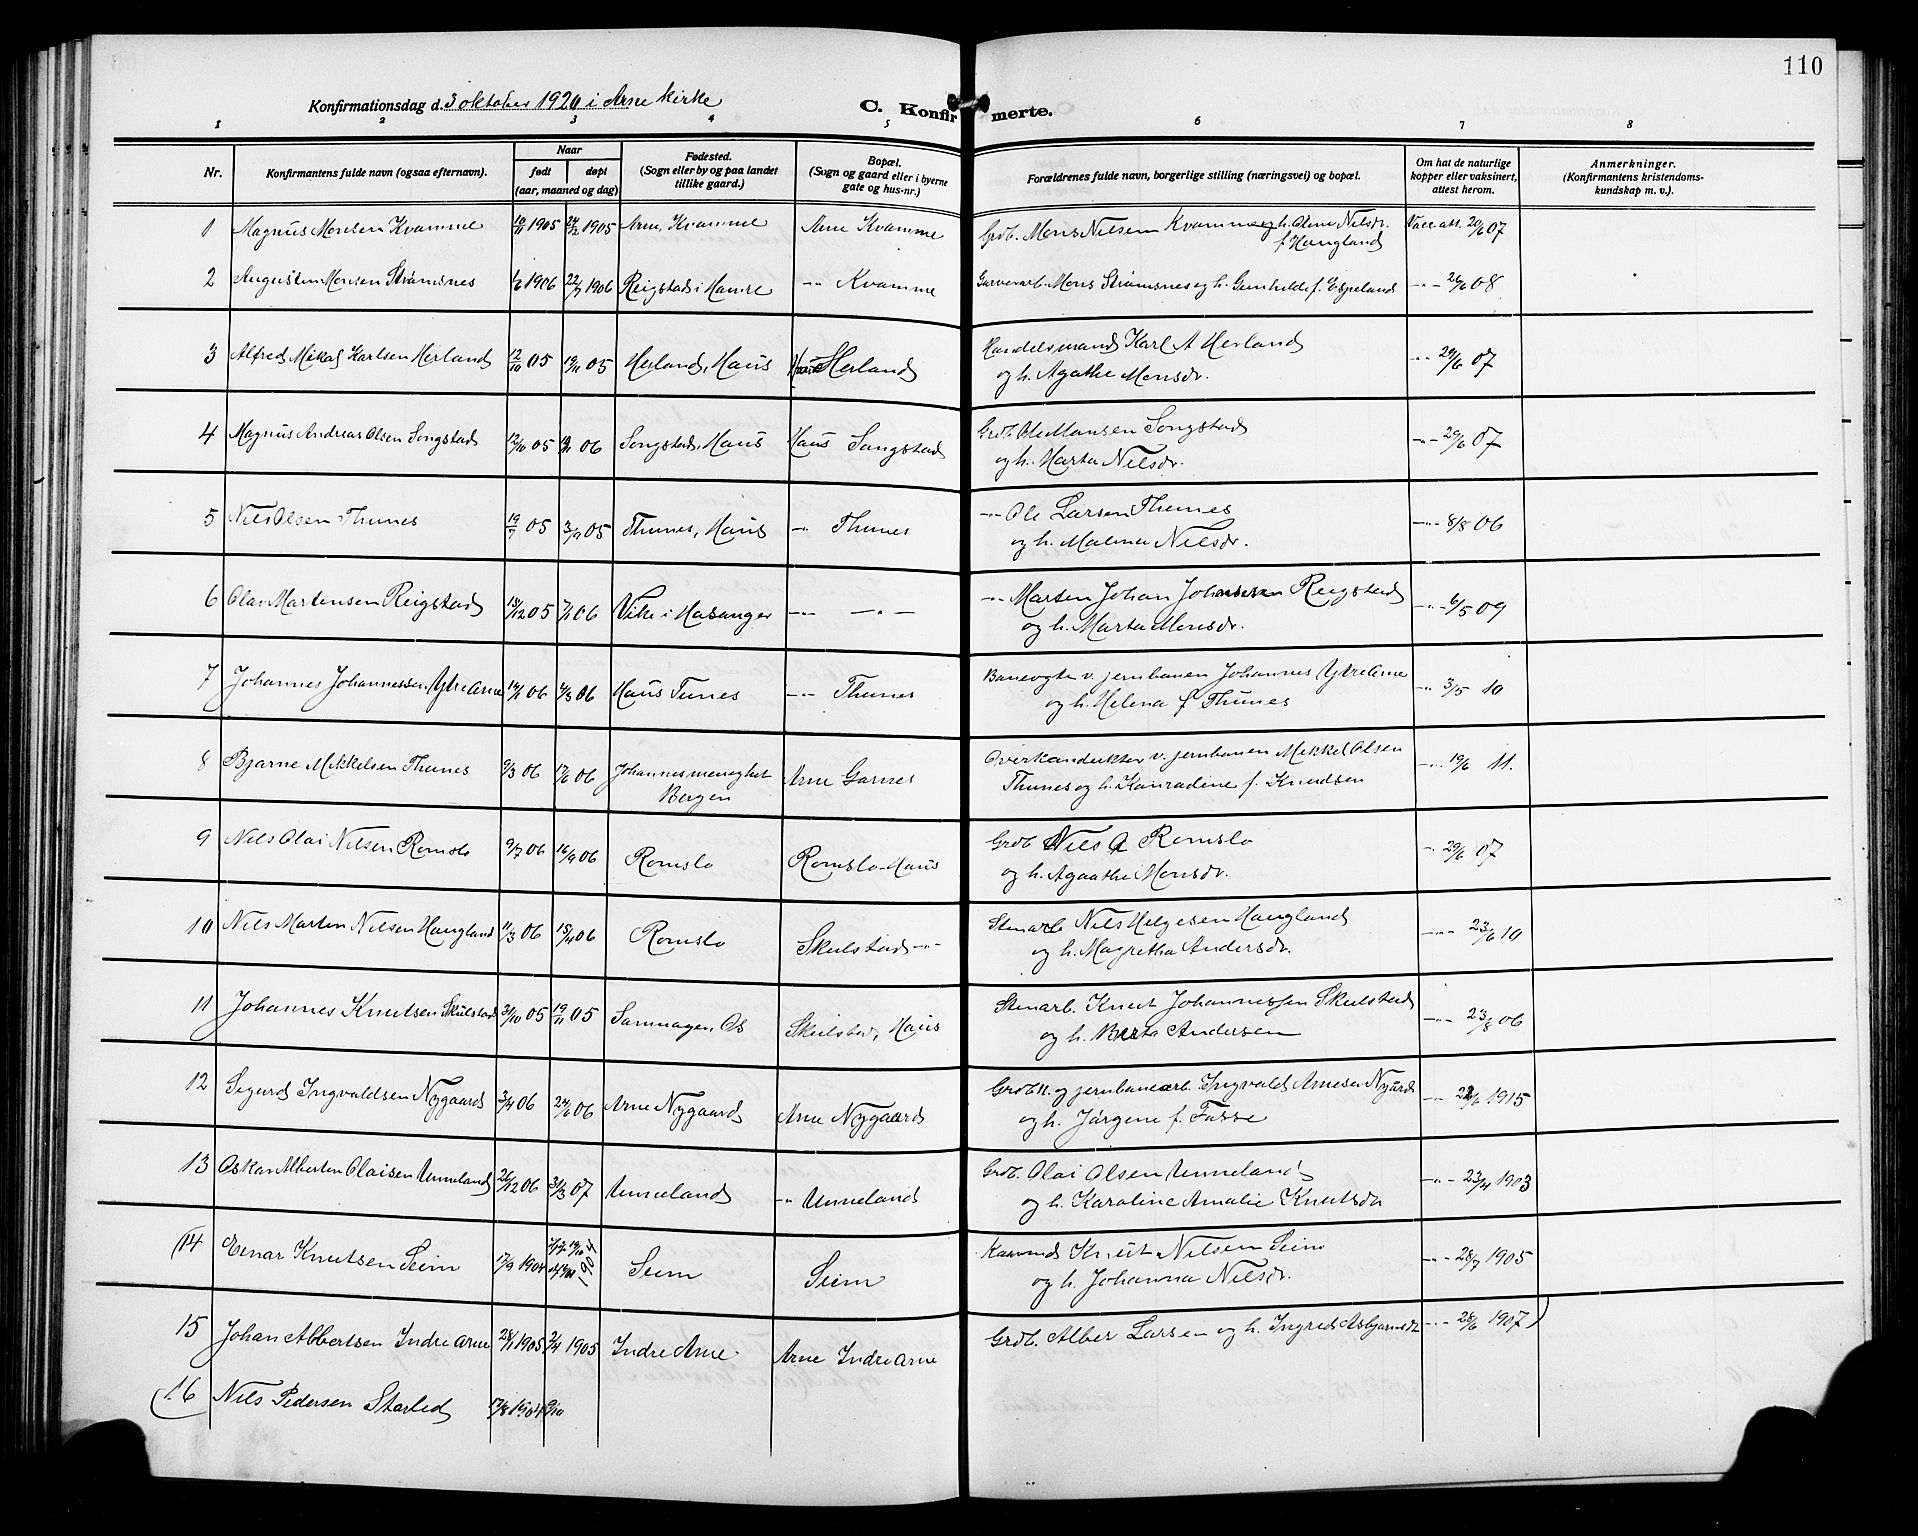 110
Konfirmationsdag d. 3 oktober 1920 i Arne kirke
C. Konfirmerte.
1 2 3 4 5 6 7 8
Nr. Konfirmantens fulde navn (ogsaa efternavn). Naar født døpt (aar, maaned og dag) Fødested. (Sogn eller by og paa landet tillike gaard.) Bopæl. (Sogn og gaard eller i byerne gate og hus-nr.) Forældrenes fulde navn, borgerlige stilling (næringsvei) og bopæl. Om hat de naturlige kopper eller vaksinert, attest herom. Anmerkninger. (Konfirmantens kristendomskundskap m. v.)
1 Magnus Monsen Kvamme 1905 1905 Arne, Kvamme Arne Kvamme Grdb. Mons Nilsen Kvamme og h. Nilsdr. f. Haugland Vacc.att. 07
2 Augustin Monsen Strømsnes 1906 22/7 1906 Reigstad i Hamre -"- Kvamme Garverarb. Mons Strømsnes og h. Gunhilde f. Espeland -"- 08
3 Alfred Mikal Karlsen Herland 12/10 05 19/11 05 Herland, Haus Haus Herland Handelsmand Karl A Herland og h. Agathe Monsdr. -"- 29/6 07
4 Magnus Andreas Olsen Songstad 12/10 05 06 Songstad, Haus Haus Songstad Grdb. Ole Monsen Songstad og h. Marta Nilsdr. -"- 29/6 07
5 Nils Olsen Thunes 19/7 05 3/9 05 Thunes, Haus -"- Thunes -"- Ole Larsen Thunes og h. Malena Nilsdr. -"- 8/8 06
6 Olav Martensen Reigstad 13/12 05 7/1 06 Vike i Masanger -"- -"- -"- Marten Johan Johannesen Reigstad og h. Marta Monsdr. -"- 6/5 09
7 Johannes Johannessen Ytre Arne 14/1 06 4/3 06 Haus Tunes -"- Thunes Banevogter v. jernbanen Johannes Ytre Arne og h. Helena f Thunes -"- 3/5 10
8 Bjarne Mikkelsen Thunes 9/3 06 17/6 06 Johannesmenighet Bergen Arne Garnes Overkonduktør v. jernbanen Mikkel Olsen Thunes og h. Konradine f. Knudsen -"- 19/6 11.
9 Nils Olai Nilsen Romslo 9/7 06 16/9 06 Romslo Romslo - Haus Grdb Nils A Romslo og h. Agaathe Monsdr. -"- 29/6 07
10 Nils Marten Nilsen Haugland 11/3 06 15/4 06 Romslo Skulstad -"- Stenarb Nils Helgesen Haugland og h. Magretha Andersdr. -"- 23/6 10
11 Johannes Knutsen Skulstad 31/10 05 19/11 05 Samnager, Os Skulstad, Haus Stenarb. Knut Johannessen Skulstad og h. Berta Andersen -"- 23/8 06
12 Sigurd Ingvaldsen Nygaard 3/4 06 24/6 06 Arne Nygaard Arne Nygaard Grdbr. og jernbanearb. Ingvald Arnesen Nygård og h. Jørgene f. Fosse -"- 1915
13 Oskar Alberten Olaisen Unneland 26/12 06 31/3 07 Unneland -"- Unneland Grdb. Olai Olsen Unneland og h. Karoline Amalie Knutsdr -"- 23/4 1903
(14 Einar Knutsen Seim 17/9 1904 1904 Seim Seim Knut Nilsen Seim og h. Johanna Nilsdr. -"- 28/7 1905
15 Johan Albertsen Indre Arne 28/1 1905 2/4 1905 Indre Arne Arne Indre Arne Grdb. Alber Larsen og h. Ingred Asbjørnsdr -"- 28/6 1907)
(16 Nils Pedersen Starled 17/8 1904